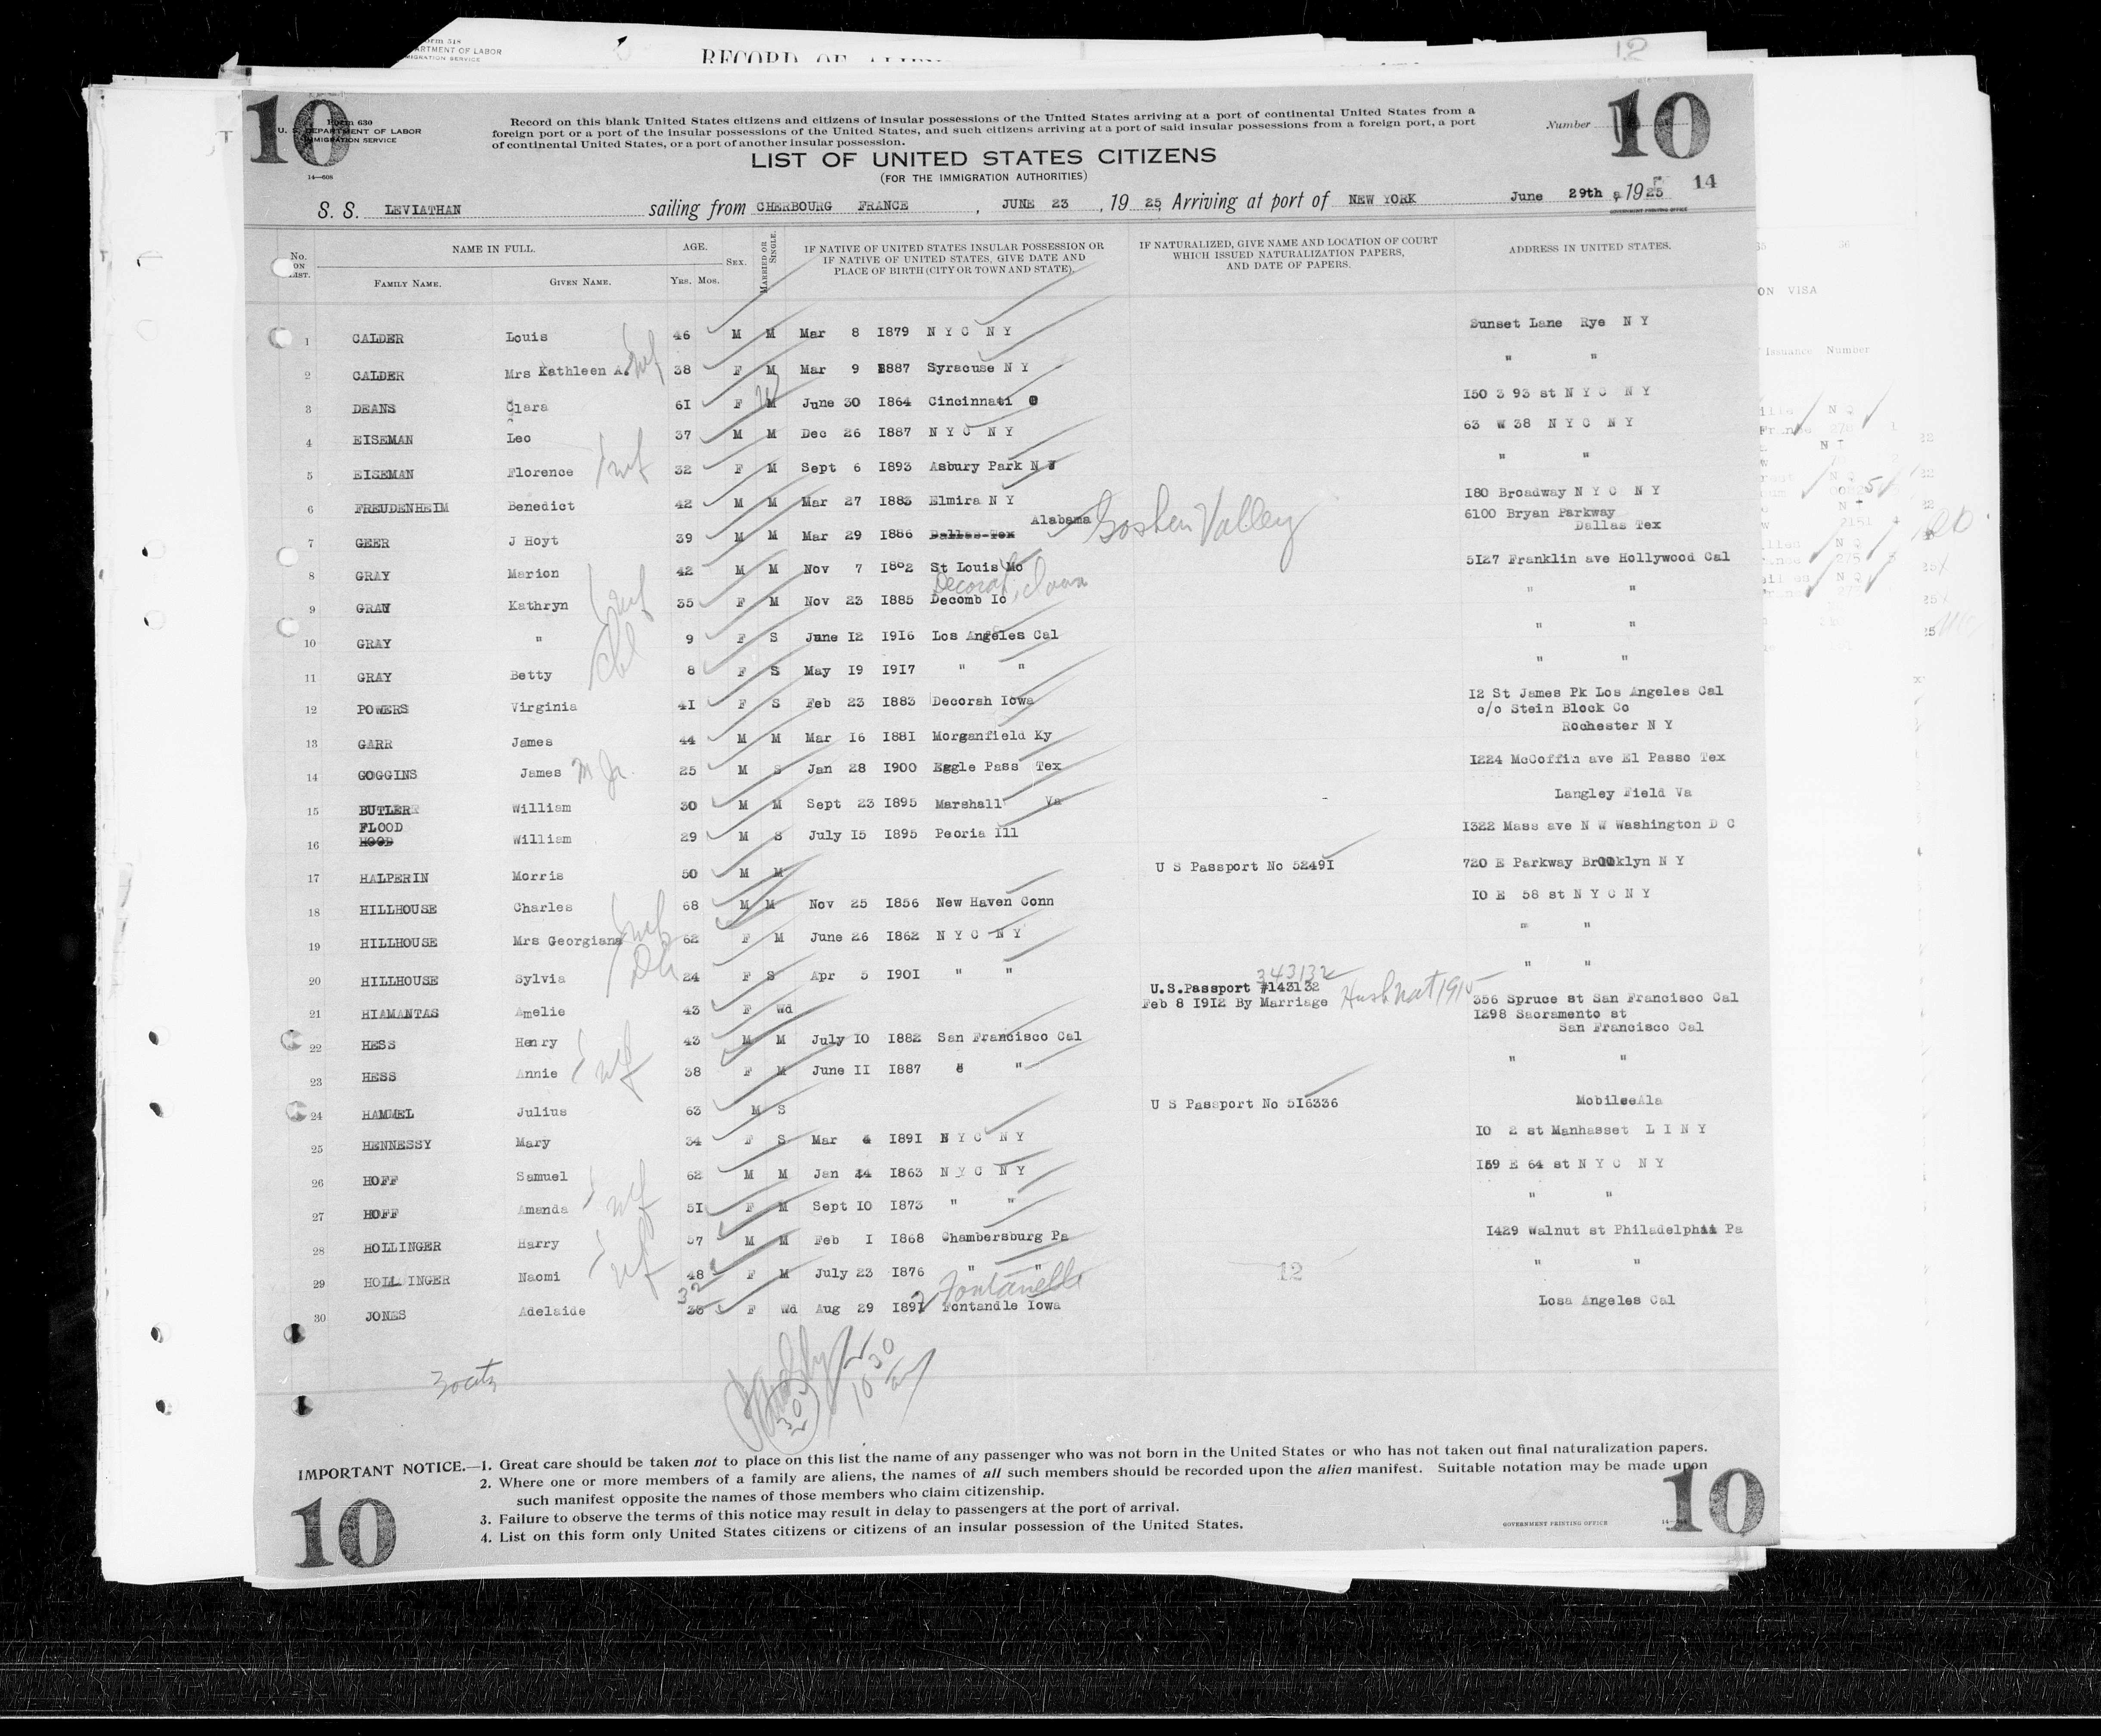 Form 548
DEPARTMENT OF LABOR
IMMIGRATION SERVICE
RECORD OF ALIEN
12
10
Form 630
U. S. DEPARTMENT OF LABOR
IMMIGRATION SERVICE
14—608
Record on this blank United States citizens and citizens of insular possessions of the United States arriving at a port of continental United States from a
foreign port or a port of the insular possessions of the United States, and such citizens arriving at a port of said insular possessions from a foreign port, a port
of continental United States, or a port of another insular possession.
Number
10
LIST OF UNITED STATES CITIZENS
(FOR THE IMMIGRATION AUTHORITIES)
14
S. S. LEVIATHAN sailing from CHERBOURG FRANCE, JUNE 23, 19 25, Arriving at port of NEW YORK June 29th, 1925
GOVERNMENT PRINTING OFFICE
No. ON LIST. NAME IN FULL. AGE. SEX. MARRIED OR SINGLE. IF NATIVE OF UNITED STATES INSULAR POSSESSION OR IF NATIVE OF UNITED STATES, GIVE DATE AND PLACE OF BIRTH (CITY OR TOWN AND STATE). IF NATURALIZED, GIVE NAME AND LOCATION OF COURT WHICH ISSUED NATURALIZATION PAPERS, AND DATE OF PAPERS. ADDRESS IN UNITED STATES.
FAMILY NAME. GIVEN NAME. YRS. MOS.
1 CALDER Louis 46 M M Mar 8 I879 N Y C N Y Sunset Lane Rye N Y
2 CALDER Mrs Kathleen A. wf 38 F M Mar 9 I887 Syracuse N Y " "
3 DEANS Clara 6I F M W June 30 I864 Cincinnati O I50 3 93 st N Y C N Y
4 EISEMAN Leo 37 M M Dec 26 I887 N Y C N Y 63 W 38 N Y C N Y
5 EISEMAN Florence wf 32 F M Sept 6 I893 Asbury Park N J " "
6 FREUDENHEIM Benedict 42 M M Mar 27 I883 Elmira N Y I80 Broadway N Y C N Y
7 GEER J Hoyt 39 M M Mar 29 I886 Dallas Tex Alabama Goshen Valley 6I00 Bryan Parkway
Dallas Tex
8 GRAY Marion 42 M M Nov 7 I882 St Louis Mo 5I27 Franklin ave Hollywood Cal
Decorah, Iowa
9 GRAY Kathryn wf 35 F M Nov 23 I885 Decomb Io " "
10 GRAY " 9 F S June I2 I9I6 Los Angeles Cal " "
11 GRAY Betty 8 F S May I9 I9I7 " " " "
12 POWERS Virginia 4I F S Feb 23 I883 Decorah Iowa I2 St James Pk Los Angeles Cal
c/o Stein Block Co
13 GARR James 44 M M Mar I6 I88I Morganfield Ky Rochester N Y
14 GOGGINS James M Jr. 25 M S Jan 28 I900 Eggle Pass Tex I224 McCoffin ave El Passo Tex
15 BUTLER William 30 M M Sept 23 I895 Marshall Va Langley Field Va
FLOOD
16 HOOD William 29 M S July I5 I895 Peoria Ill I322 Mass ave N W Washington D C
17 HALPERIN Morris 50 M M U S Passport No 5249I 720 E Parkway Brooklyn N Y
18 HILLHOUSE Charles 68 M M Nov 25 I856 New Haven Conn I0 E 58 st N Y C N Y
19 HILLHOUSE Mrs Georgiana wf 62 F M June 26 I862 N Y C N Y " "
20 HILLHOUSE Sylvia 24 F S Apr 5 I90I " " " "
343132
U.S.Passport #143132
21 HIAMANTAS Amelie 43 F Wd Feb 8 I9I2 By Marriage Husb Nat 1915 356 Spruce st San Francisco Cal
I298 Sacramento st
22 HESS Henry 43 M M July I0 I882 San Francisco Cal San Francisco Cal
23 HESS Annie wf 38 F M June II I887 " " " "
24 HAMMEL Julius 63 M S U S Passport No 5I6336 Mobilee Ala
25 HENNESSY Mary 34 F S Mar 4 I89I N Y C N Y I0 2 st Manhasset L I N Y
26 HOFF Samuel 62 M M Jan 14 I863 N Y C N Y I59 E 64 st N Y C N Y
27 HOFF Amanda wf 5I F M Sept I0 I873 " " " "
28 HOLLINGER Harry 57 M M Feb I I868 Chambersburg Pa I429 Walnut st Philadelphia Pa
29 HOLLINGER Naomi wf 48 F M July 23 I876 " " 12 " "
32 2 Fontanelle
30 JONES Adelaide F Wd Aug 29 I89I Fontandle Iowa Losa Angeles Cal
30
10 30
IMPORTANT NOTICE.—1. Great care should be taken not to place on this list the name of any passenger who was not born in the United States or who has not taken out final naturalization papers.
2. Where one or more members of a family are aliens, the names of all such members should be recorded upon the alien manifest. Suitable notation may be made upon
such manifest opposite the names of those members who claim citizenship.
3. Failure to observe the terms of this notice may result in delay to passengers at the port of arrival.
4. List on this form only United States citizens or citizens of an insular possession of the United States.
GOVERNMENT PRINTING OFFICE
10
10
ON VISA
Issuance Number